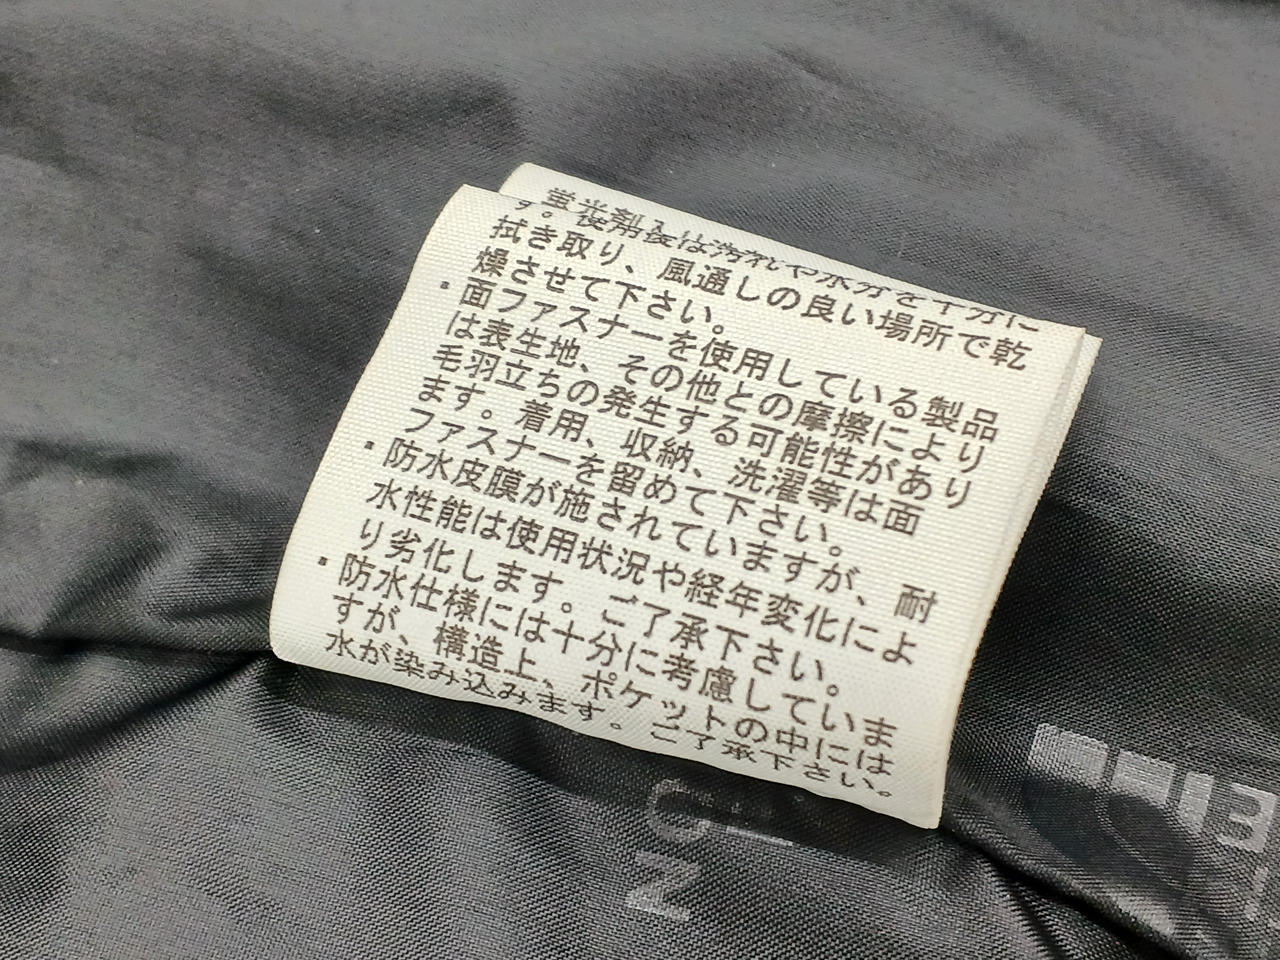 蛍光剤入
す。使用後は汚れや水分を十分に
拭き取り、風通しの良い場所で乾
燥させて下さい。
・面ファスナーを使用している製品
は表生地、その他との摩擦により
毛羽立ちの発生する可能性があり
ます。着用、収納、洗濯等は面
ファスナーを留めて下さい。
・防水皮膜が施されていますが、耐
水性能は使用状況や経年変化によ
り劣化します。ご了承下さい。
・防水仕様には十分に考慮していま
すが、構造上、ポケットの中には
水が染み込みます。ご了承下さい。